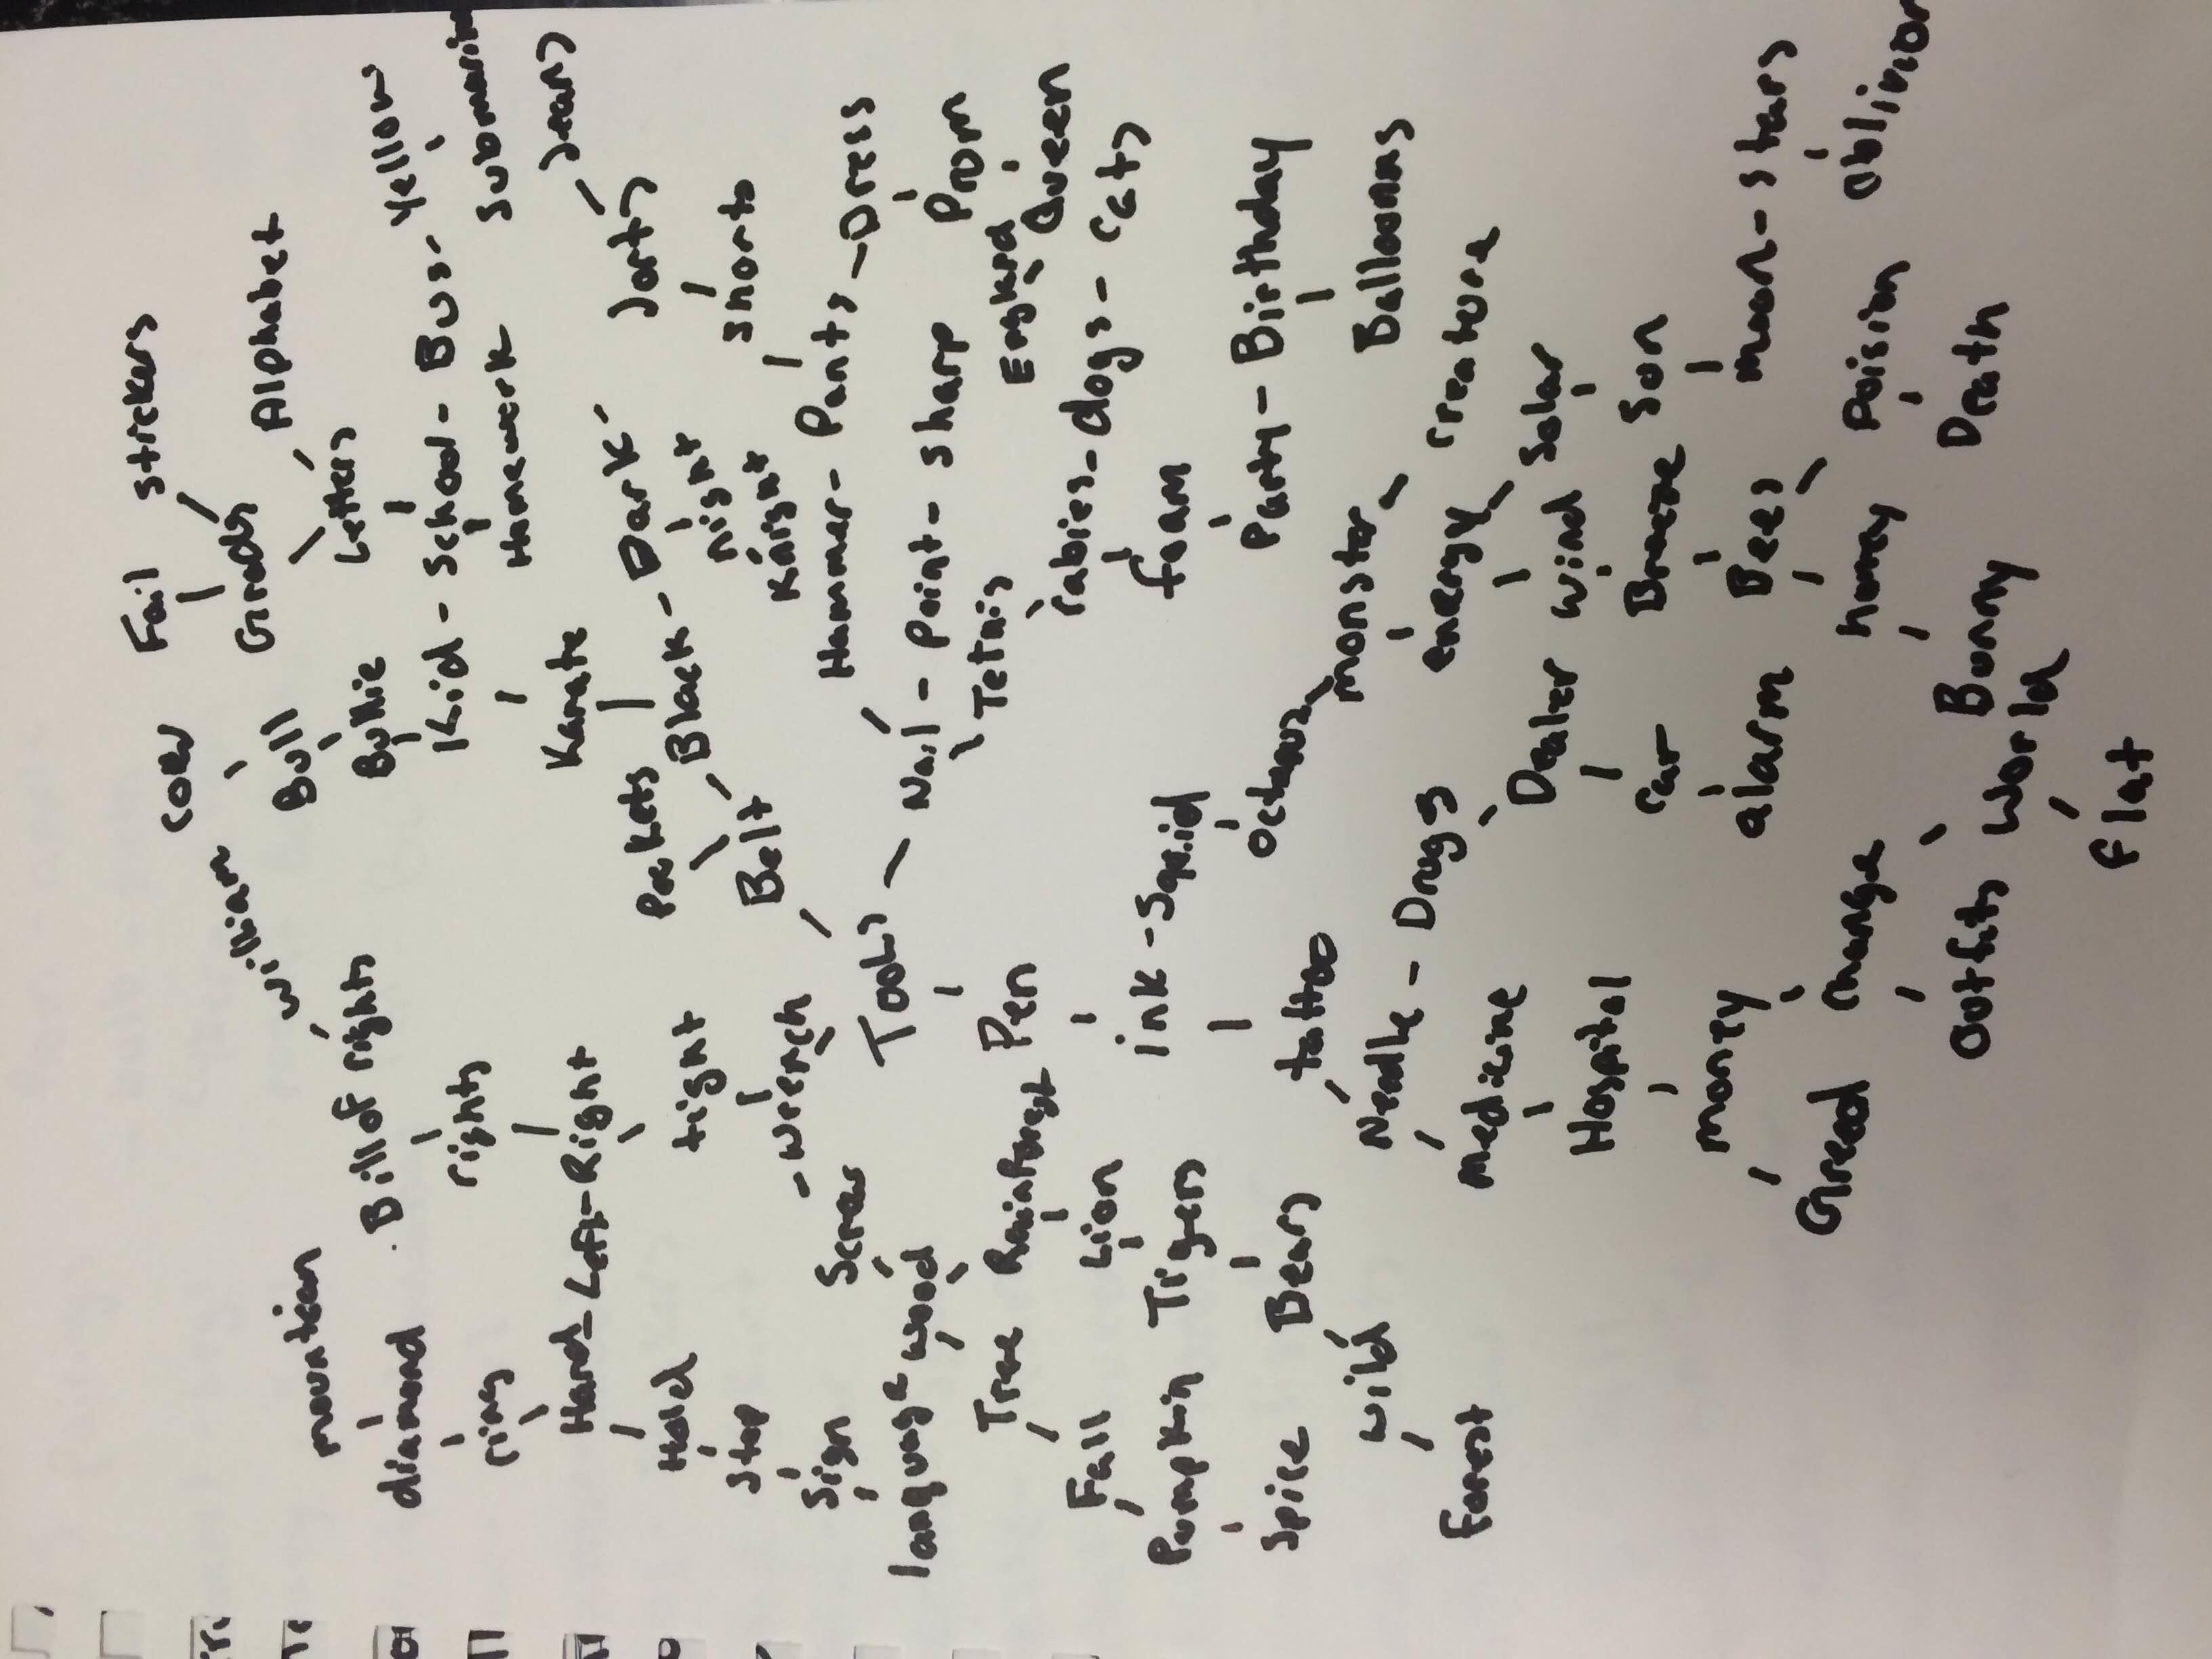 Fail stickers
Grads
Alphabet
Letters
cow
Bull
Bullie
Kid - School - Bus - Yellow
Submarin
Homework
Karate
Jeans
Jorts
Shorts
Pockets
Black - Dark
night
Knight
Belt
William
Bill of rights
rights
mountian
diamond
ring
Hand - Left - Right
Hold
tight
Stop
wrench
Sign
Screw
language
wood
Tools
Hammer - Pants - Dress
Nail - Point - Sharp
Prom
Queen
Tetnis
rabies - dogs - cats
foam
Party - Birthday
Balloons
Pen
ink - Squid
Octopus
monster
creature
energy
Solar
wind
Son
moon - stars
Oblivion
Breeze
Bees
honey
Poision
Death
Bunny
tattoo
Needle - Drugs
Dealer
car
alarm
medicine
Hospital
money
Greed
mange
outfits
world
flat
Tree
Rainforest
Lion
Tigers
Bears
wild
forest
Fall
Pumpkin
Spice